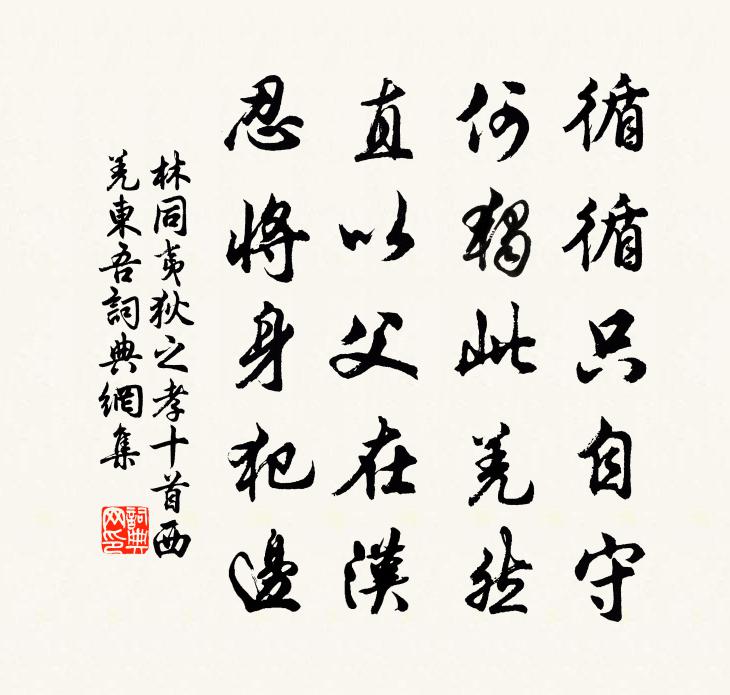 循循只自守
何獨此羌然
直以父在漢
忍將身犯邊
林同夷狄之孝十首西
羌東吾詞典網集
詞典網印